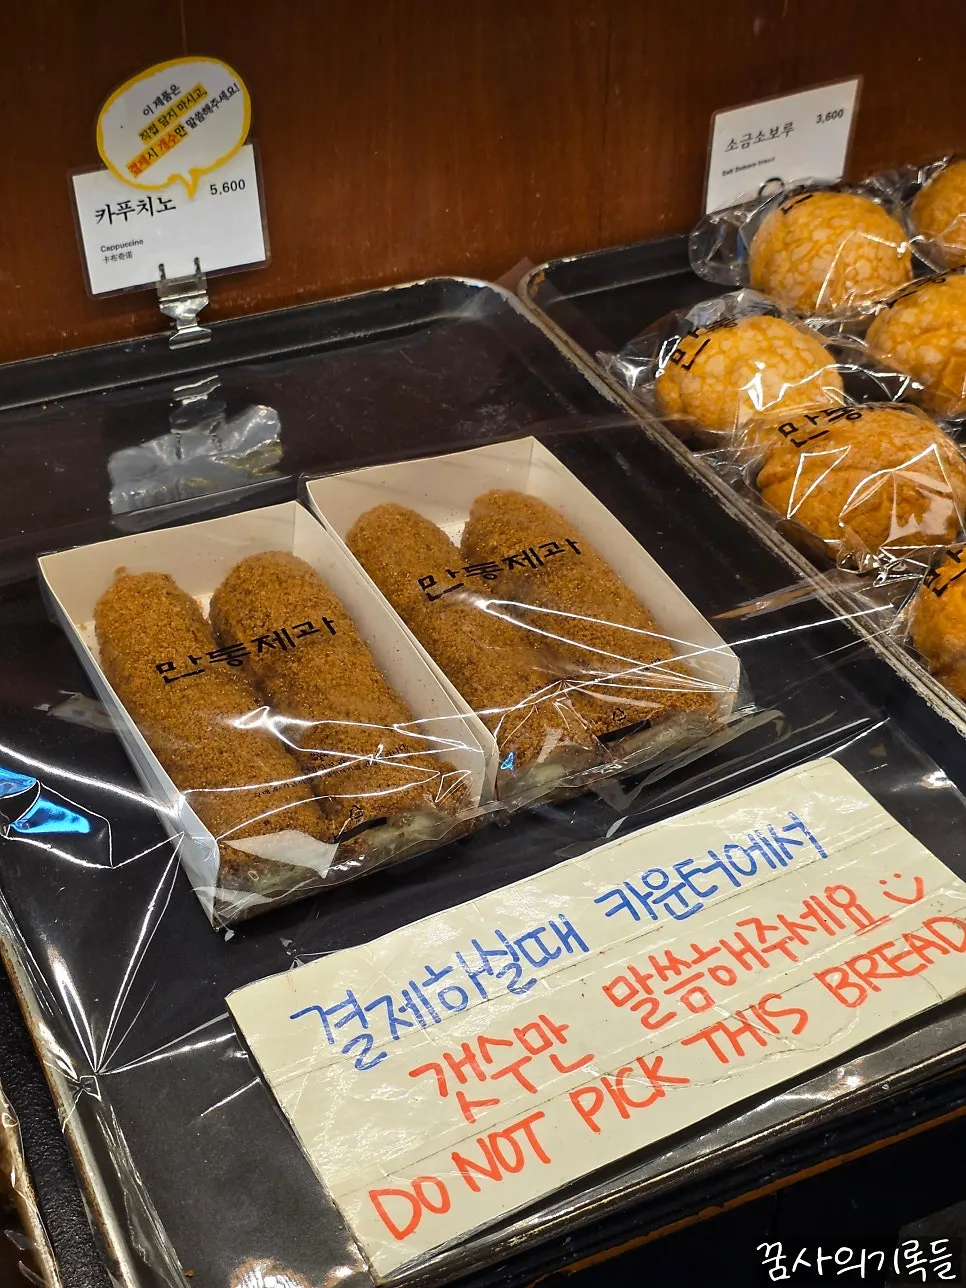 이 제품은
직접 담지 마시고,
결제시 개수만 말씀해주세요!
카푸치노
5,600
Cappuccino
卡布奇诺
소금소보루
3,600
Salt Soboro bread
만동제과
만동제과
만
만동
만
결제하실때 카운터에서
갯수만 말씀해주세요
DO NOT PICK THIS BREAD
꿈사의기록들